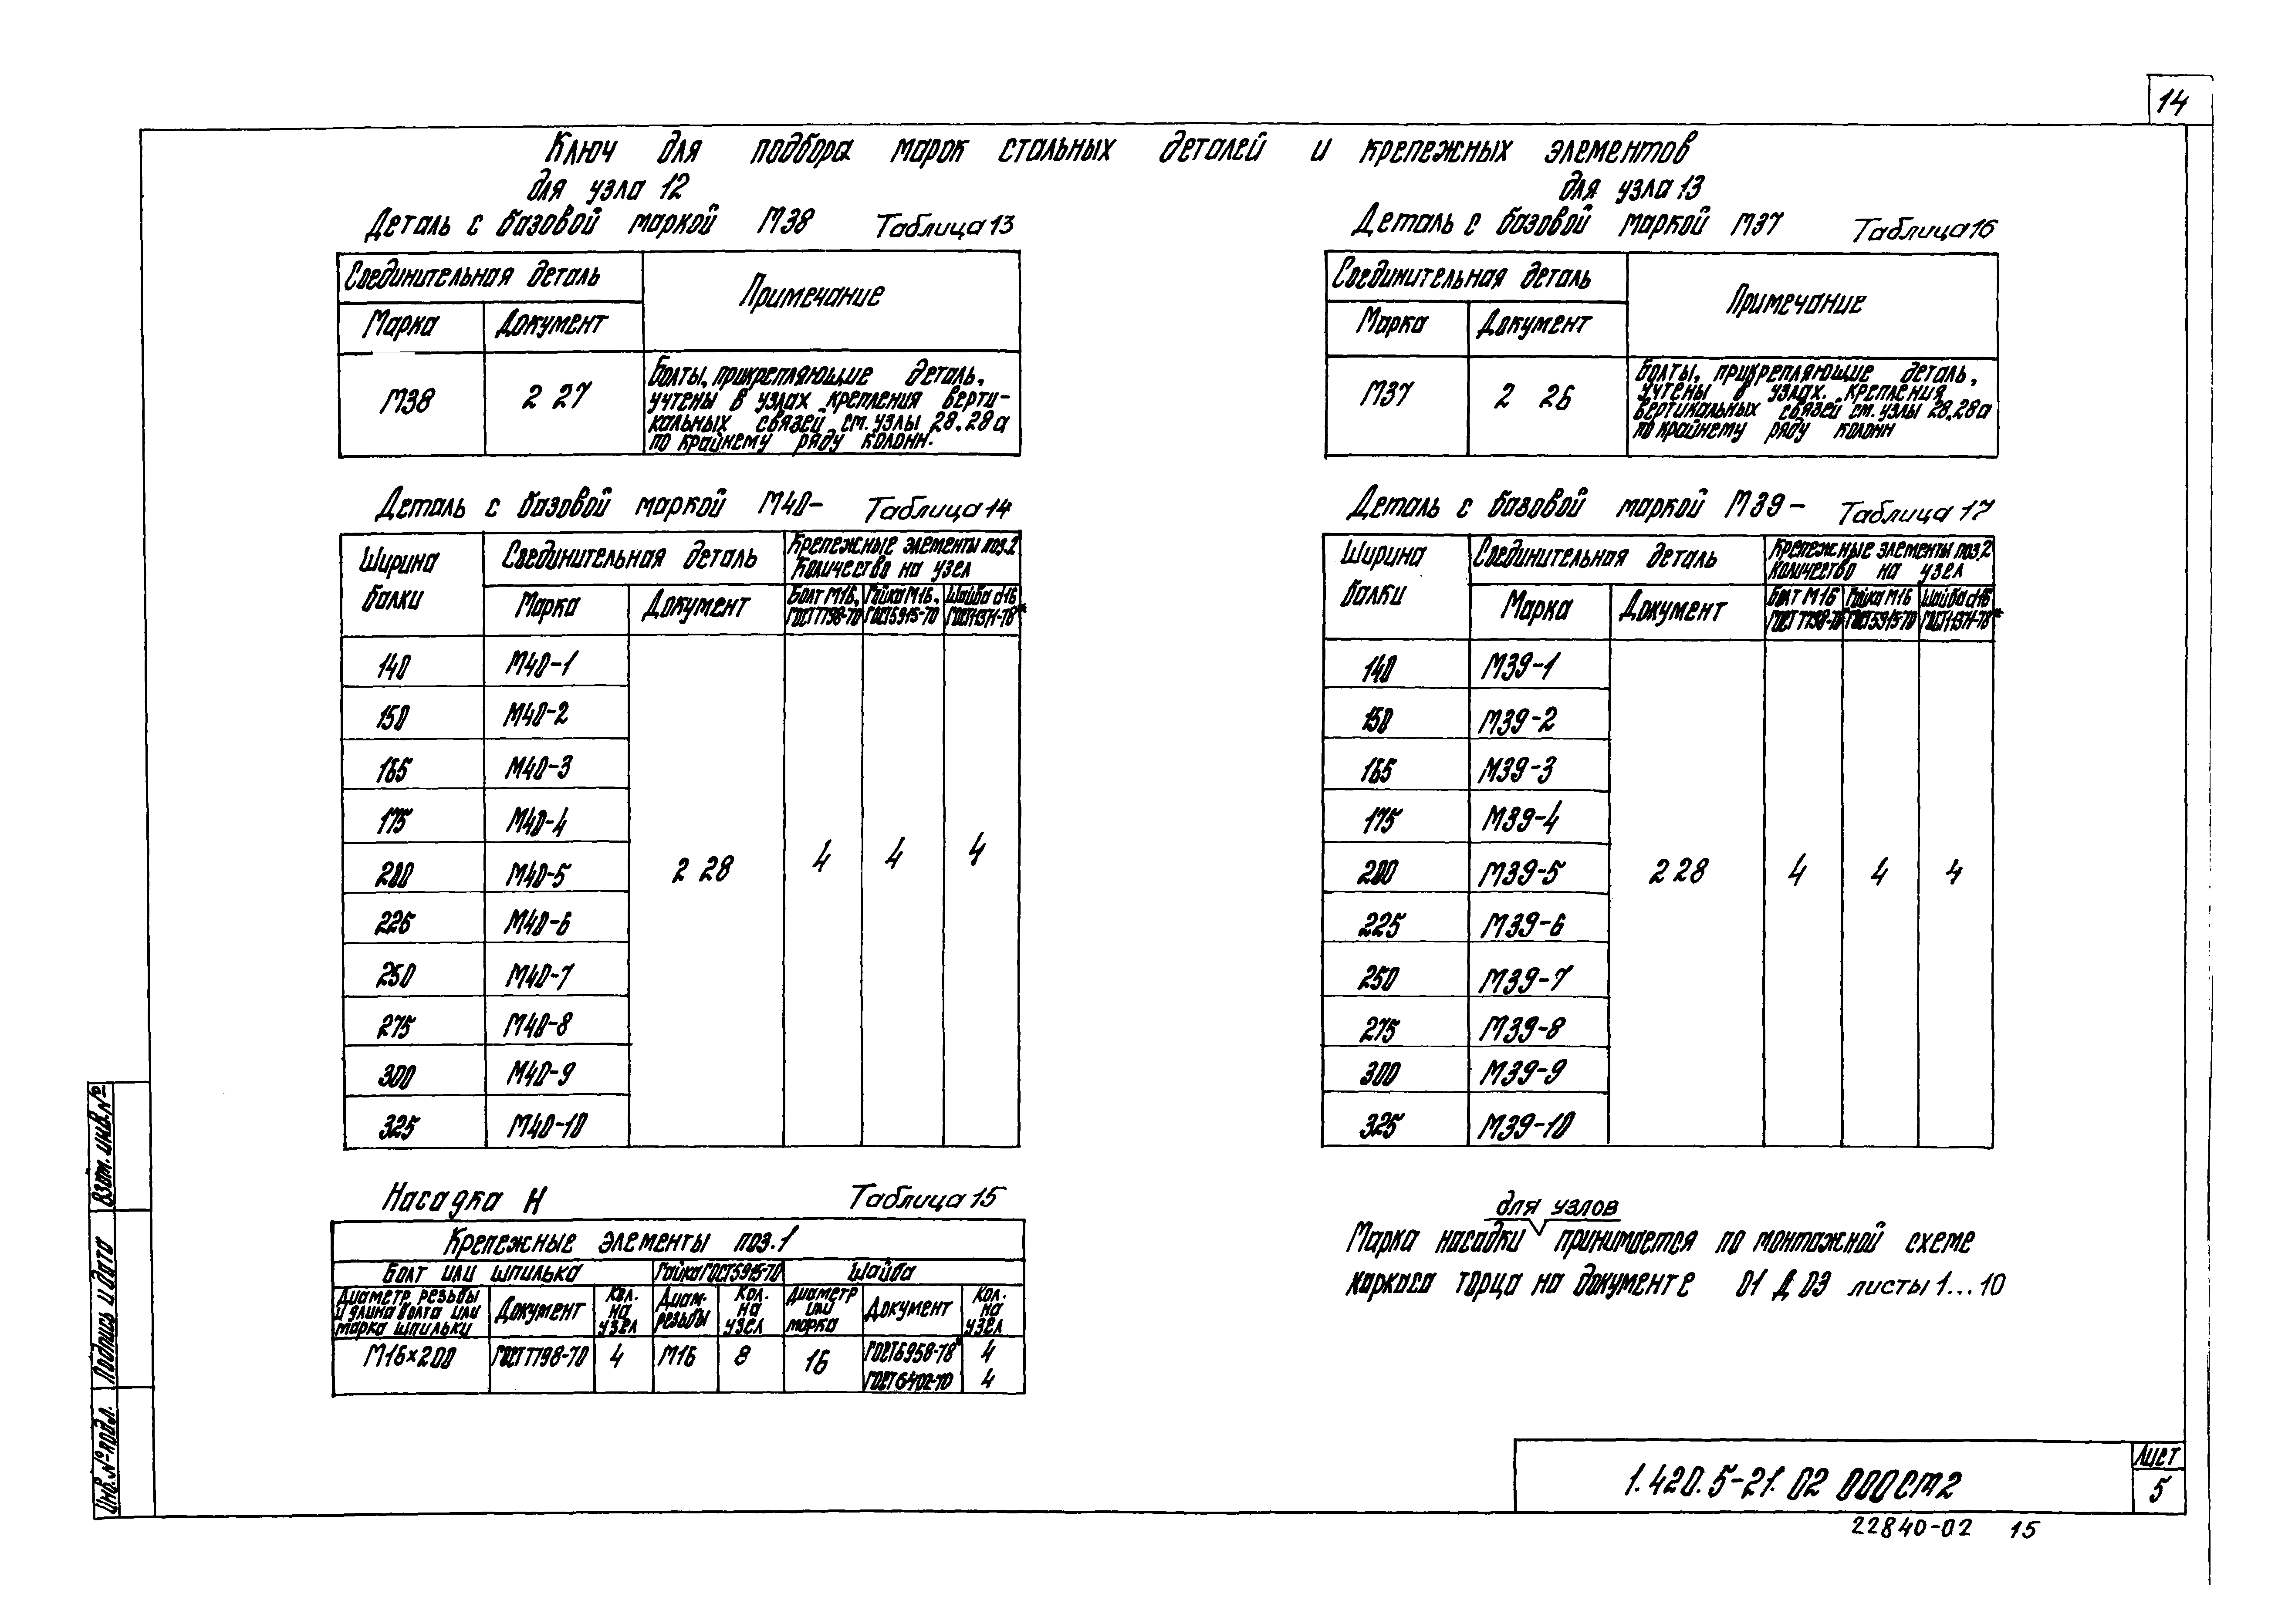 14
Ключ для подбора марок стальных деталей и крепежных элементов
для узла 12
Деталь с базовой маркой М38 Таблица 13
Соединительная деталь
Примечание
Марка Документ
М38 2 27
Болты, прикрепляющие деталь,
учтены в узлах крепления верти-
кальных связей см. узлы 28, 28а
по крайнему ряду колонн.
Деталь с базовой маркой М40- Таблица 14
Ширина балки
Соединительная деталь
Крепежные элементы поз.2
Количество на узел
Марка Документ
Болт М16, Гайка М16, Шайба d16
ГОСТ 7798-70 ГОСТ 5915-70 ГОСТ 11371-78*
140 М40-1
150 М40-2
165 М40-3
175 М40-4
200 М40-5 2 28 4 4 4
225 М40-6
250 М40-7
275 М40-8
300 М40-9
325 М40-10
Насадка Н Таблица 15
Крепежные элементы поз.1
Болт или шпилька Гайка ГОСТ 5915-70 Шайба
Диаметр резьбы
и длина болта или
марка шпильки
Документ
Кол.
на
узел
Диам.
резьбы
Кол.
на
узел
Диаметр
или
марка
Документ
Кол.
на
узел
М16×200 ГОСТ 7798-70 4 М16 8 16 ГОСТ 6958-78* 4
ГОСТ 6402-70 4
для узла 13
Деталь с базовой маркой М37 Таблица 16
Соединительная деталь
Примечание
Марка Документ
М37 2 26
Болты, прикрепляющие деталь,
учтены в узлах. крепления
вертикальных связей см. узлы 28, 28а
по крайнему ряду колонн
Деталь с базовой маркой М39- Таблица 17
Ширина балки
Соединительная деталь
Крепежные элементы поз.2
Количество на узел
Марка Документ
Болт М16 Гайка М16 Шайба d16
ГОСТ 7798-70 ГОСТ 5915-70 ГОСТ 11371-78*
140 М39-1
150 М39-2
165 М39-3
175 М39-4
200 М39-5 2 28 4 4 4
225 М39-6
250 М39-7
275 М39-8
300 М39-9
325 М39-10
для узлов
Марка насадки принимается по монтажной схеме
каркаса торца на документе 01 Д 03 листы 1...10
Взам. инв.№
Подпись и дата
Инв.№ подл.
1.420.5-21.02 000СМ2
Лист
5
22840-02 15